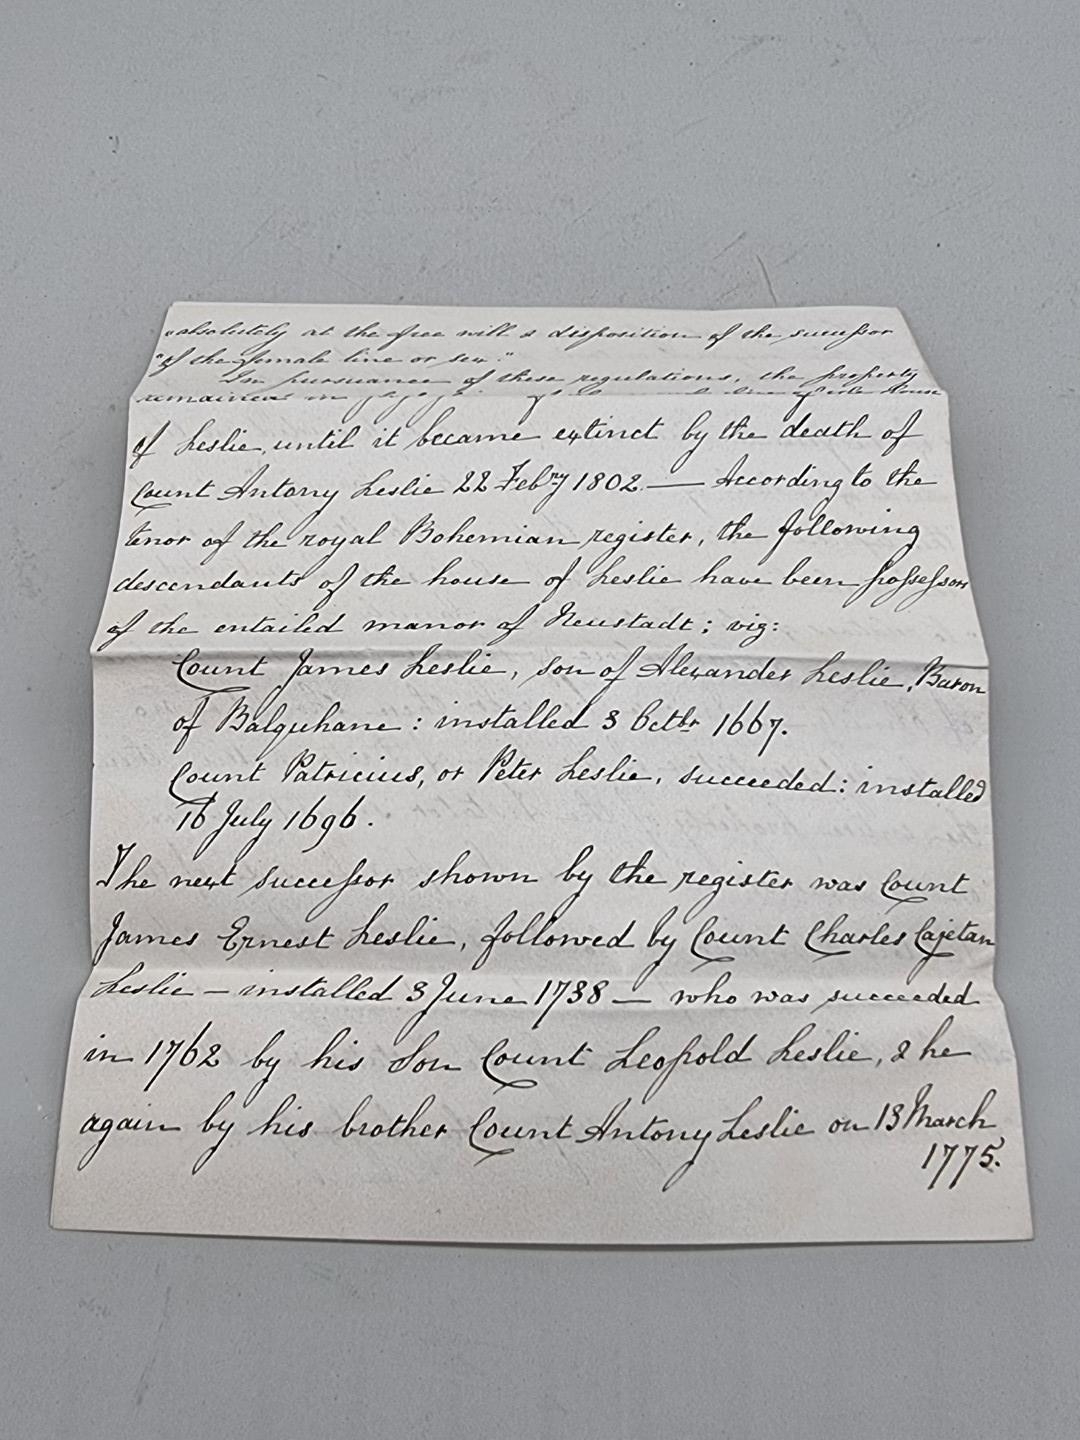 "absolutely at the free will & disposition of the successor
"of the female line or sex."
In pursuance of these regulations, the property
remained in
of Leslie, until it became extinct by the death of
Count Antony Leslie 22 Febry 1802. — According to the
tenor of the royal Bohemian register, the following
descendants of the house of Leslie have been possessors
of the entailed manor of Neustadt; viz:
Count James Leslie, son of Alexander Leslie, Baron
of Balquhane: installed 3 Octbr 1667.
Count Patricius, or Peter Leslie, succeeded: installed
16 July 1696.
The next successor shown by the register was Count
James Ernest Leslie, followed by Count Charles Cajetan
Leslie — installed 3 June 1738 — who was succeeded
in 1762 by his Son Count Leopold Leslie, & he
again by his brother Count Antony Leslie on 13 March
1775.